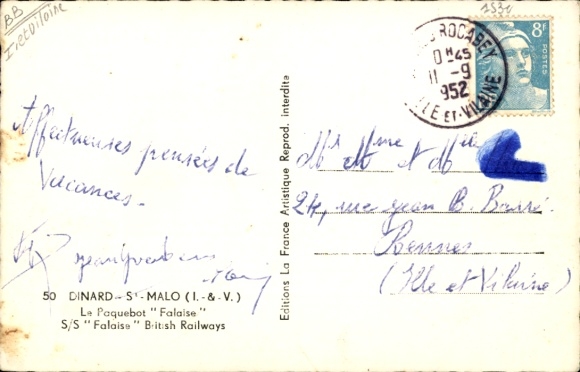 BB
Ile et Vilaine
1530
ROCABEY
0H45
11 -9
1952
ILLE ET-VILAINE
8F
POSTES
Affectueuses pensées de
Vacances.
Mr Mme et Melle
24, rue Jean B. Barré.
Rennes
(Ille et Vilaine)
Editions La France Artistique Reprod. interdite
50 DINARD - St-MALO (I.-&-V.)
Le Paquebot "Falaise"
S/S "Falaise" British Railways